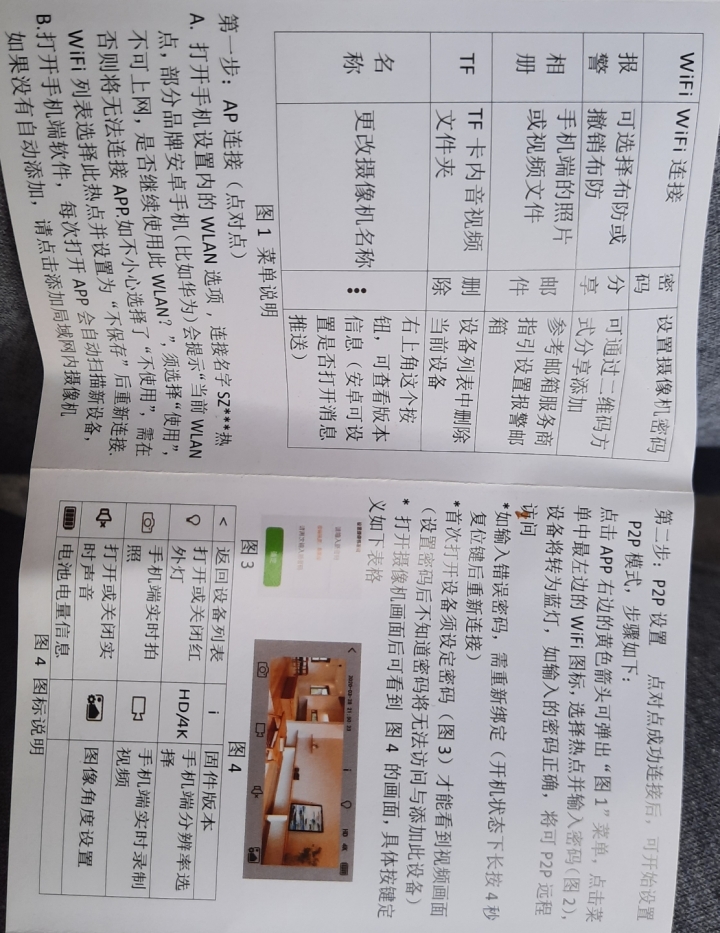 WiFi WiFi 连接 密码 设置摄像机密码
报警 可选择布防或撤销布防 分享 可通过二维码方式分享添加
相册 手机端的照片或视频文件 邮件 参考邮箱服务商指引设置报警邮箱
TF TF 卡内音视频文件夹 删除 设备列表中删除当前设备
名称 更改摄像机名称 右上角这个按钮，可查看版本信息（安卓可设置是否打开消息推送）
图 1 菜单说明
第一步：AP 连接（点对点）
A. 打开手机设置内的 WLAN 选项，连接名字 SZ***热
点，部分品牌安卓手机(比如华为)会提示“当前 WLAN
不可上网，是否继续使用此 WLAN？”，须选择“使用”，
否则将无法连接 APP.如不小心选择了“不使用”，需在
WiFi 列表选择此热点并设置为“不保存”后重新连接.
B.打开手机端软件，每次打开 APP 会自动扫描新设备，
如果没有自动添加，请点击添加局域网内摄像机
第二步：P2P 设置 点对点成功连接后，可开始设置
P2P 模式，步骤如下：
点击 APP 右边的黄色箭头可弹出“图 1”菜单，点击菜
单中最左边的 WiFi 图标,选择热点并输入密码(图 2),
设备将转为蓝灯，如输入的密码正确，将可 P2P 远程
访问
*如输入错误密码，需重新绑定（开机状态下长按 4 秒
复位键后重新连接）
*首次打开设备须设定密码（图 3）才能看到视频画面
（设置密码后不知道密码将无法访问与添加此设备）
* 打开摄像机画面后可看到 图 4 的画面，具体按键定
义如下表格
图 3
HD 4K
图 4
< 返回设备列表 i 固件版本
打开或关闭红外灯 HD/4K 手机端分辨率选择
手机端实时拍照 手机端实时录制视频
打开或关闭实时声音 图像角度设置
电池电量信息
图 4 图标说明